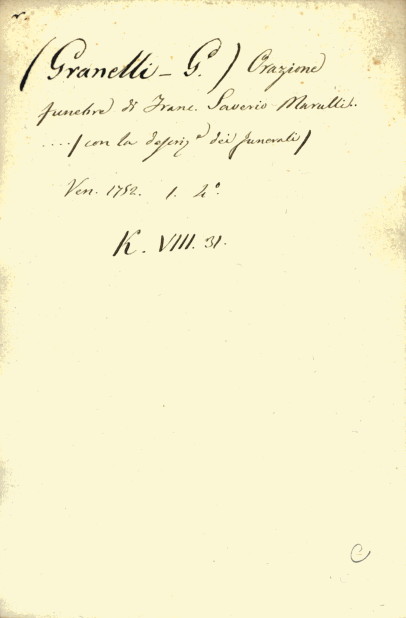 (Granelli - G.) Orazione
funebre di Franc. Saverio Marulli.
.... / con la descriz.e dei funerali /
Ven. 1752. 1. 4º.
K. VIII. 31.
C